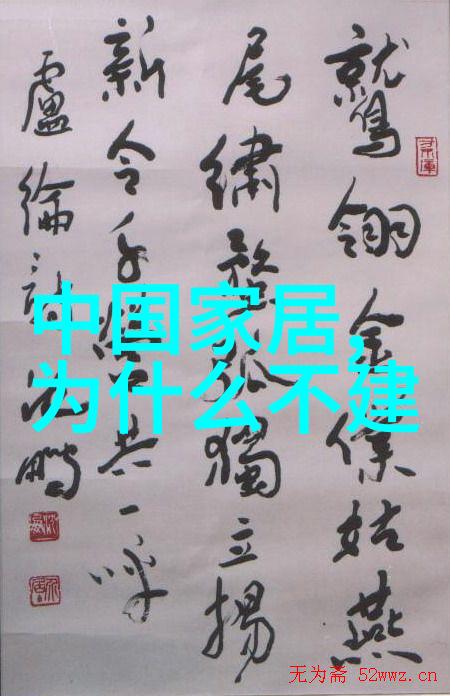 鷲翎金僕姑燕
尾繡蝥弧獨立揚
新令千營共一呼
盧綸詩沈鵬
中国家居,
为什么不建
无为斋 52wwz.cn